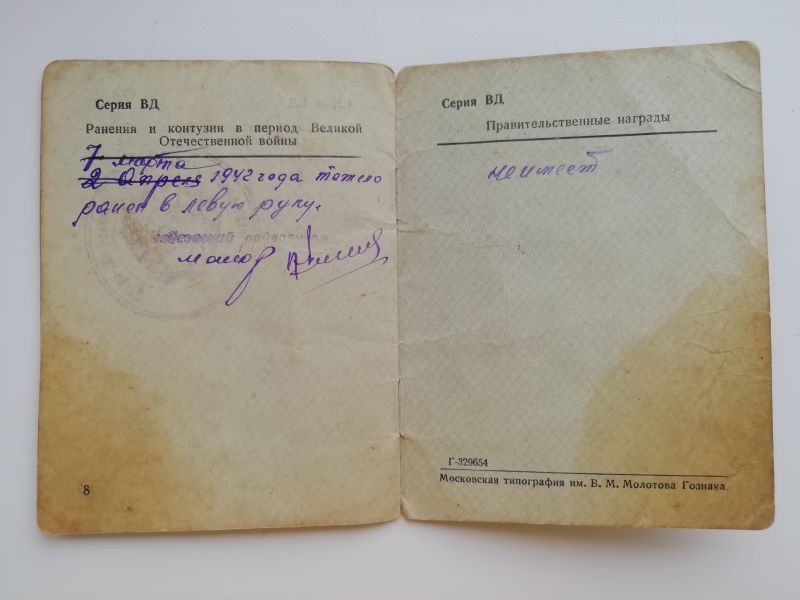 Серия ВД
Ранения и контузии в период Великой
Отечественной войны
7 марта
2 Апреля 1942 года тяжело
ранен в левую руку.
райвоенком
майор
8
Серия ВД
Правительственные награды
не имеет
Г-329654
Московская типография им. В. М. Молотова Гознака.